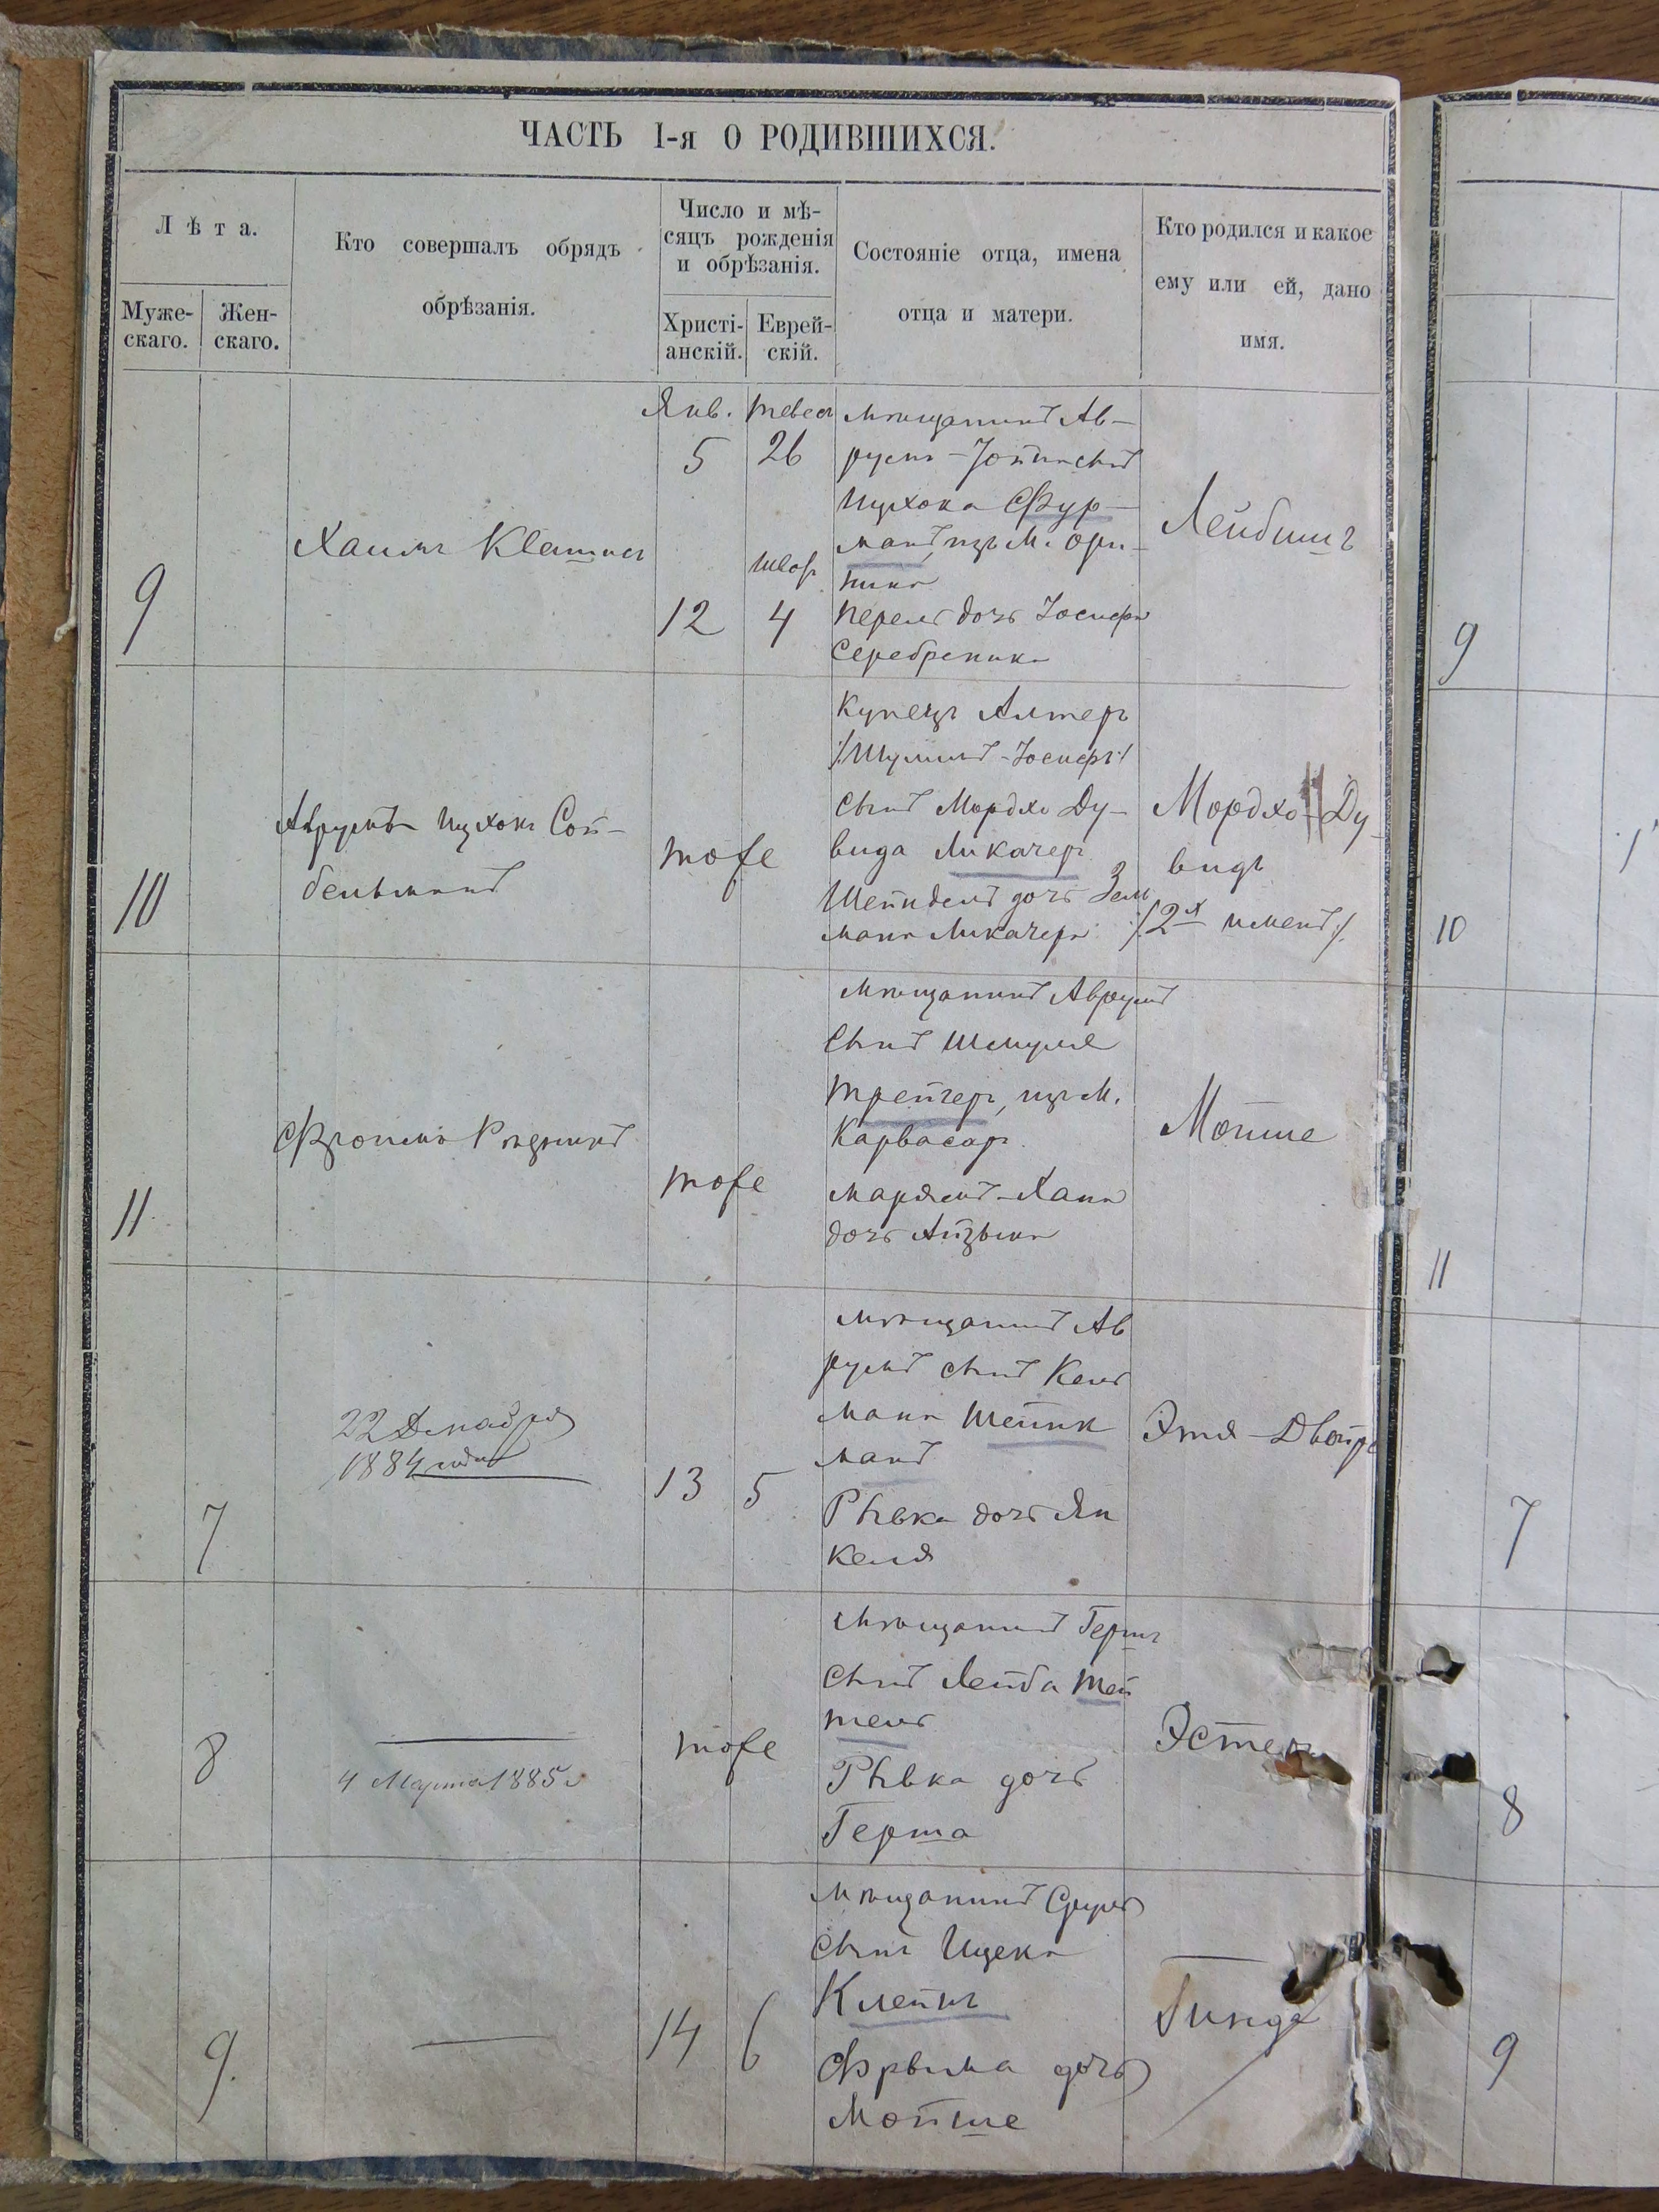 ЧАСТЬ I-я О РОДИВШИХСЯ.
Лѣта.
Муже-
скаго.
Жен-
скаго.
Кто совершалъ обрядъ
обрѣзанія.
Число и мѣ-
сяцъ рожденія
и обрѣзанія.
Христі-
анскій.
Еврей-
скій.
Состояніе отца, имена
отца и матери.
Кто родился и какое
ему или ей, дано
имя.
9
Хаимъ
Янв.
5
12
26
4
мѣщанинъ Ав-
румъ-Іойна сынъ
Ицхока Фур-
манъ, изъ м.
Перель дочь Іосифа
Серебреника
Лейбишъ
9
10
Аврумъ Ицхокъ Сой-
бельманъ
тоже
Купецъ Алтеръ
/:Шулимъ-Іосифъ:/
сынъ Мордхо Ду-
вида Ликачеръ
Шейндель дочь Зель
мана Ликачера
Мордхо-Ду-
видъ
/:2х именъ:/
10
11
Фроимъ Рѣзникъ
тоже
мѣщанинъ Аврумъ
сынъ Шмуля
Трейгеръ, изъ м.
Карвасаръ
Марямъ-Хана
дочь Айзыка
Мойше
11
7
22 Декабря
1884 года
13
5
мѣщанинъ Ав
румъ сынъ Кель
мана Шейнк
манъ
Рывка дочь Ян
келя
Этя-Двойра
7
8
4 Марта 1885 г
тоже
мѣщанинъ Гершъ
сынъ Лейба Тей
тель
Рывка дочь
Герша
Эстеръ
8
9.
14
6
мѣщанинъ Сруль
сынъ Ицека
Клейнъ
Фрыма дочь
Мойше
Гинда
9